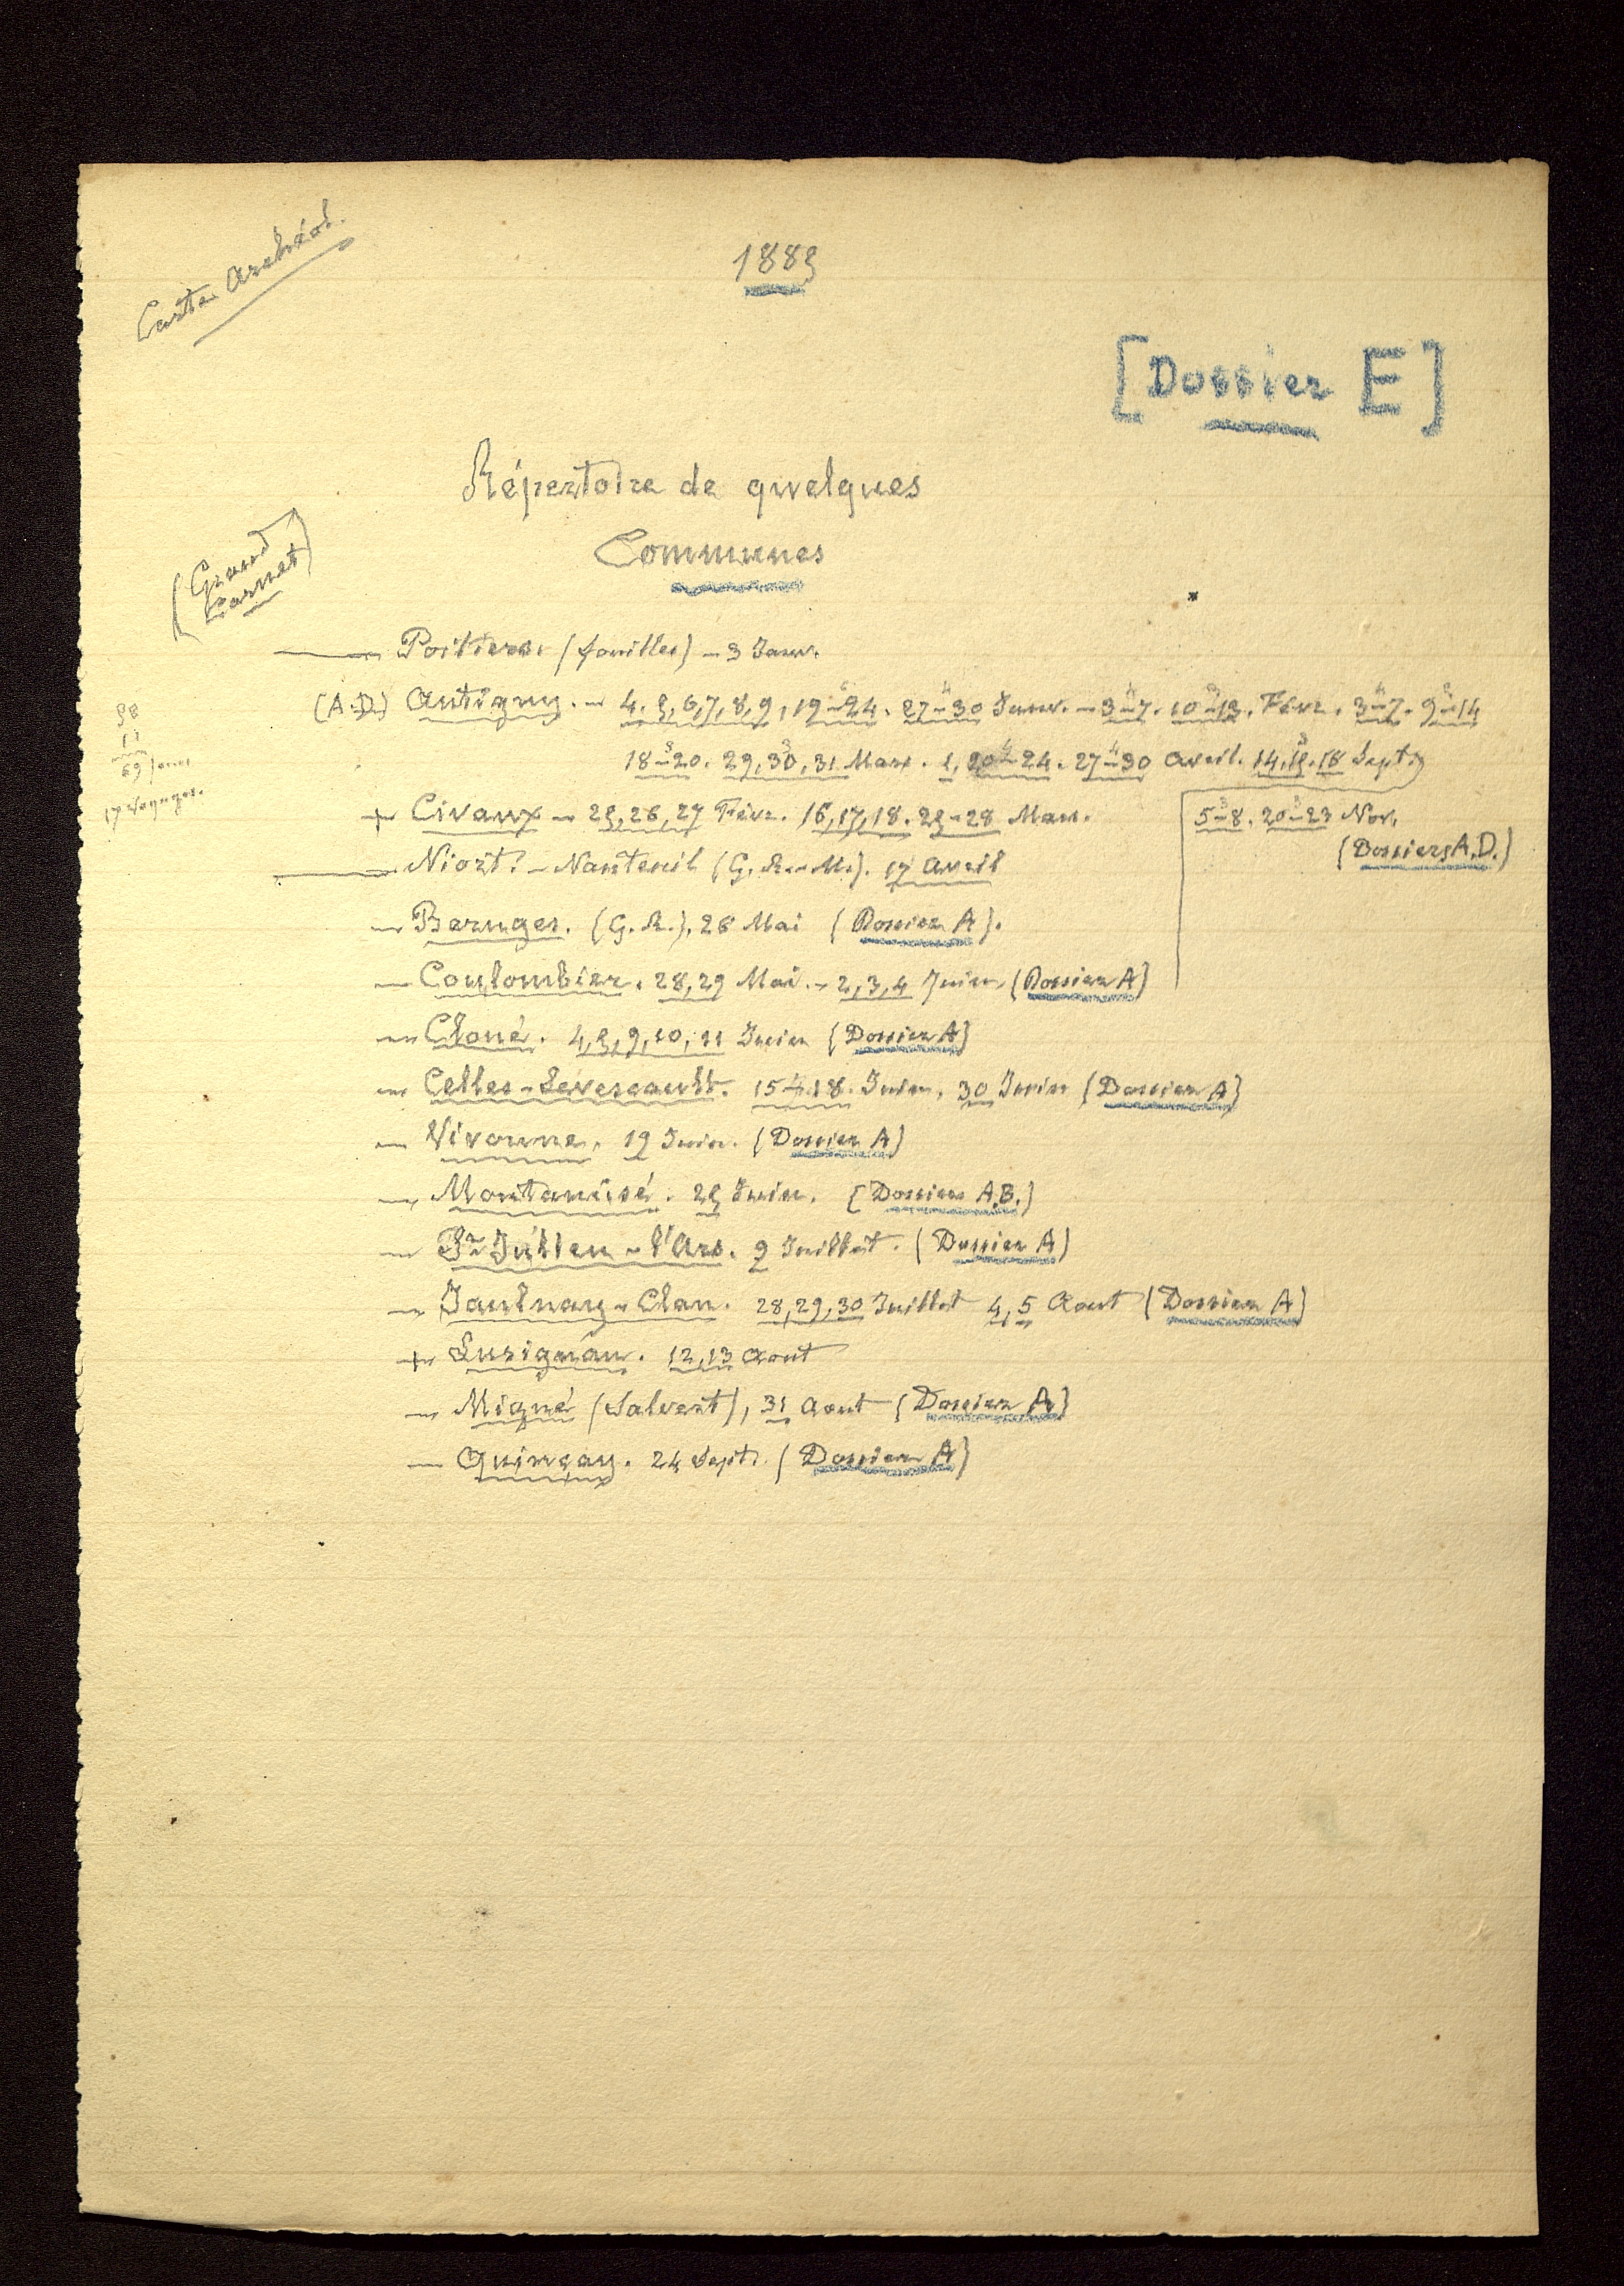 Carte Archéol.
1885
[Dossier E]
Répertoire de quelques
Communes
(Grand
Carnet)
— Poitiers. (fouilles) – 3 Janv.
(A.D.) Antigny. – 4, 5, 6, 7, 8, 9, 19–24. 27–30 Janv. – 3–7. 10–13. Févr. 3–7. 9–14
18–20. 29, 30, 31 Mars. 1, 20–24. 27–30 Avril. 14, 15, 18 Sept.
58
11
69 jours
17 voyages.
+ Civaux – 25, 26, 27 Févr. 16, 17, 18. 25–28 Mars.
5–8. 20–23 Nov.
(Dossiers A, D.)
— Niort. – Nanteuil (G. R.–M.). 17 Avril
— Beruges. (G. R.). 26 Mai (Dossier A).
— Coulombier. 28, 29 Mai. – 2, 3, 4 Juin (Dossier A)
— Cloué. 4, 5, 9, 10, 11 Juin (Dossier A)
— Celles-Lévescault. 15–18. Juin, 30 Juin (Dossier A)
— Vivonne. 19 Juin. (Dossier A)
— Montamisé. 25 Juin. (Dossiers A, B.)
— St Julien-l'Ars. 9 Juillet. (Dossier A)
— Jaulnay-Clan. 28, 29, 30 Juillet 4, 5 Aout (Dossier A)
+ Lusignan. 12, 13 Aout
— Migné (Salvert), 31 Aout (Dossier A)
— Quinçay. 24 Sept. (Dossier A)